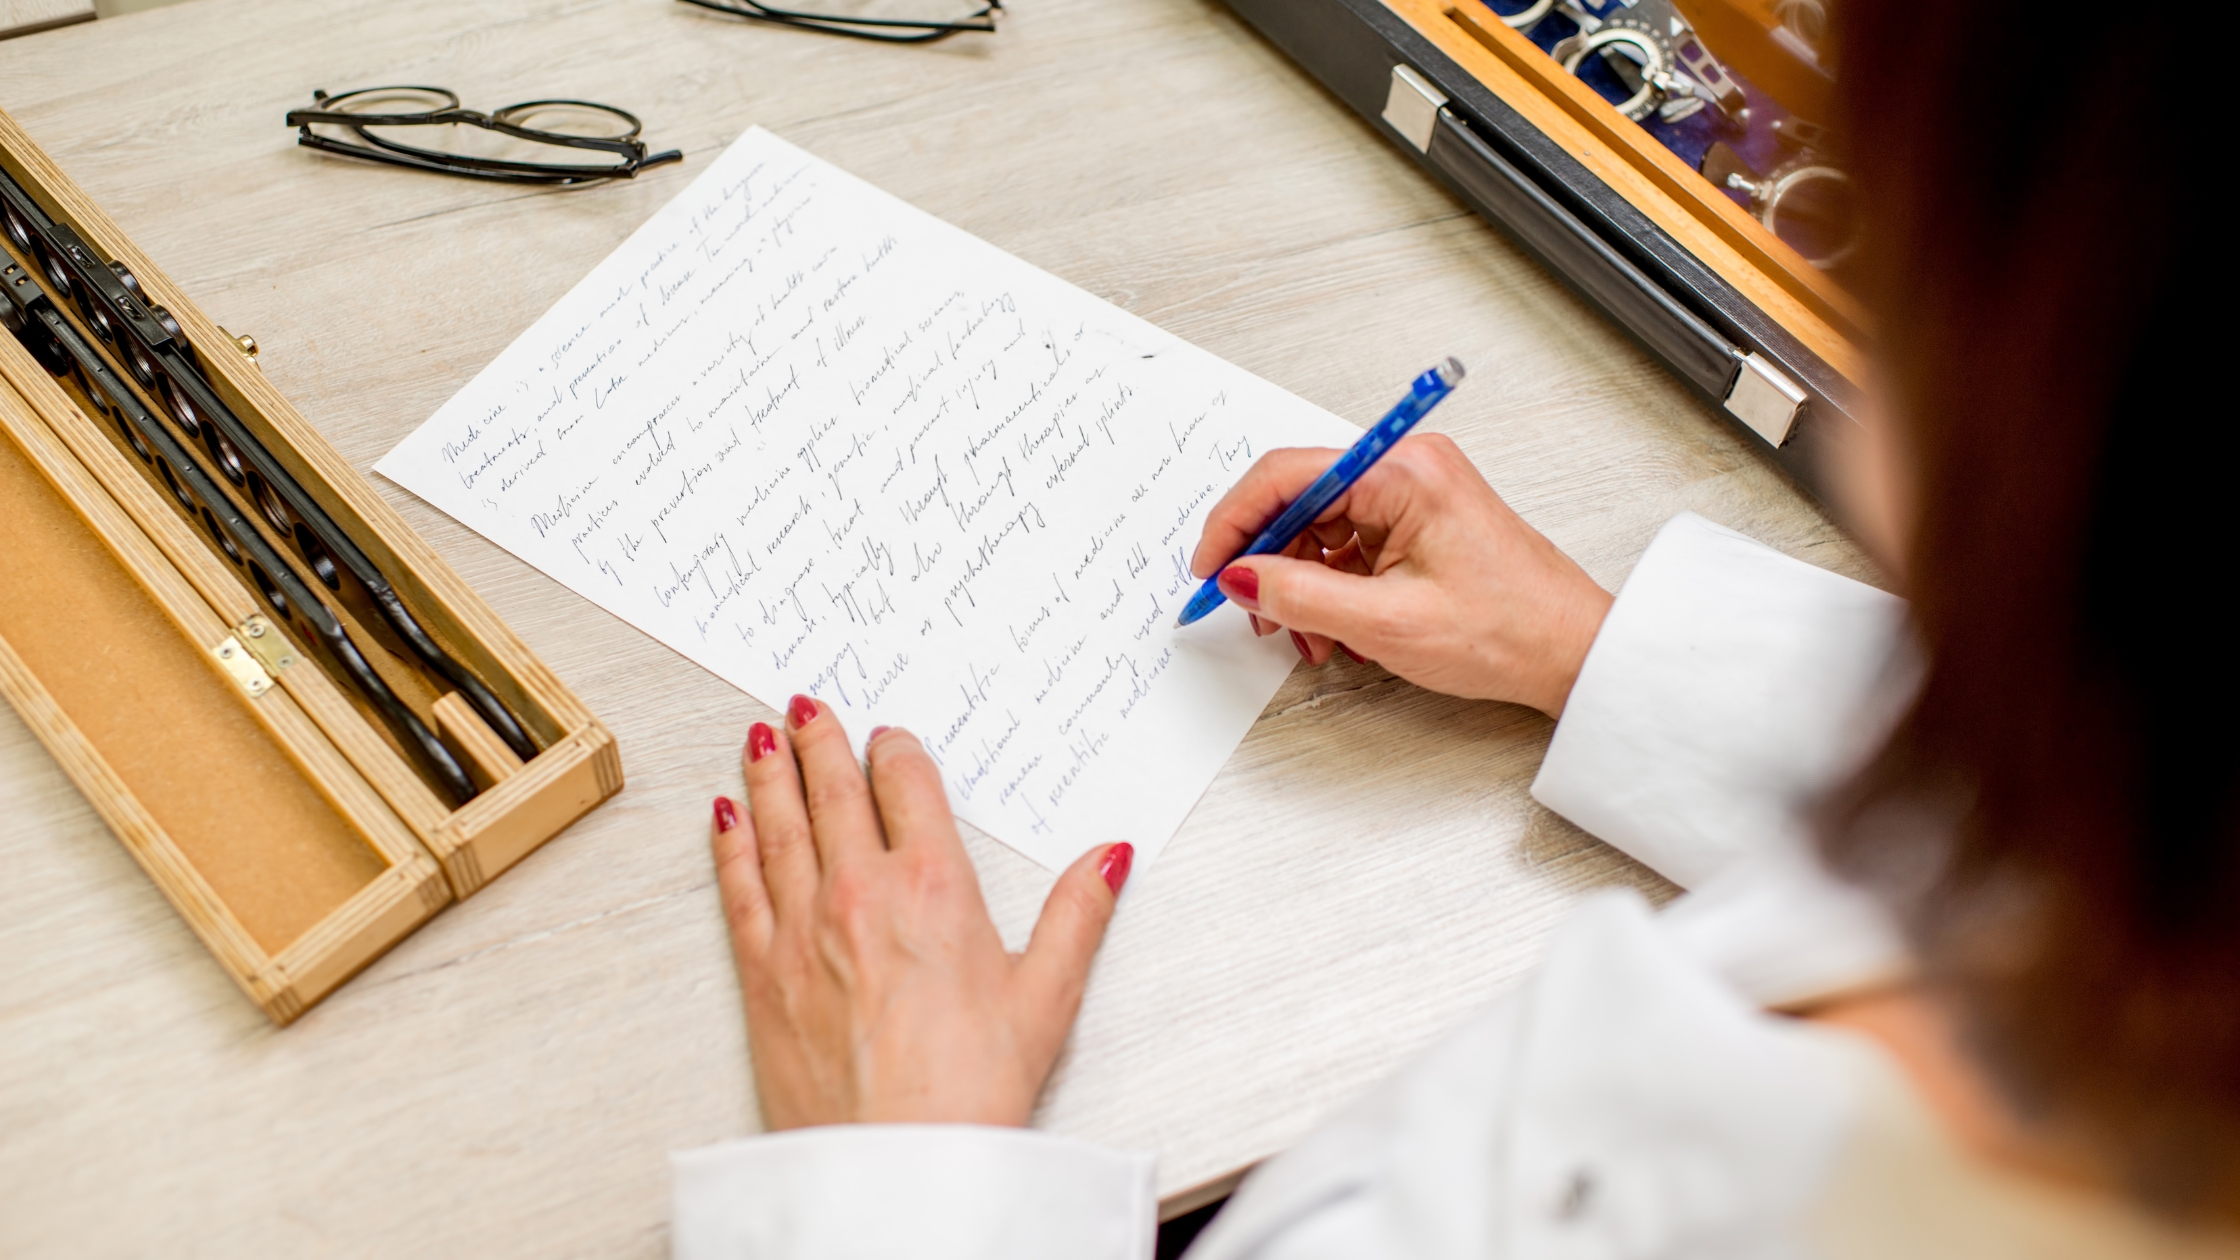 Medicine is a science and practice of the diagnosis
treatment, and prevention of disease The word medicine
is derived from Latin medicus, meaning "a physician"
Medicine encompasses a variety of health care
practices evolved to maintain and restore health
by the prevention and treatment of illness.
Contemporary medicine applies biomedical sciences,
biomedical research, genetic, medical technology
to diagnose, treat and prevent injury and
disease, typically through pharmaceuticals or
surgery, but also through therapies as
diverse as psychotherapy external splints.
Prescientific forms of medicine all now known of
traditional medicine and folk medicine. They
remain commonly used with
of scientific medicine.